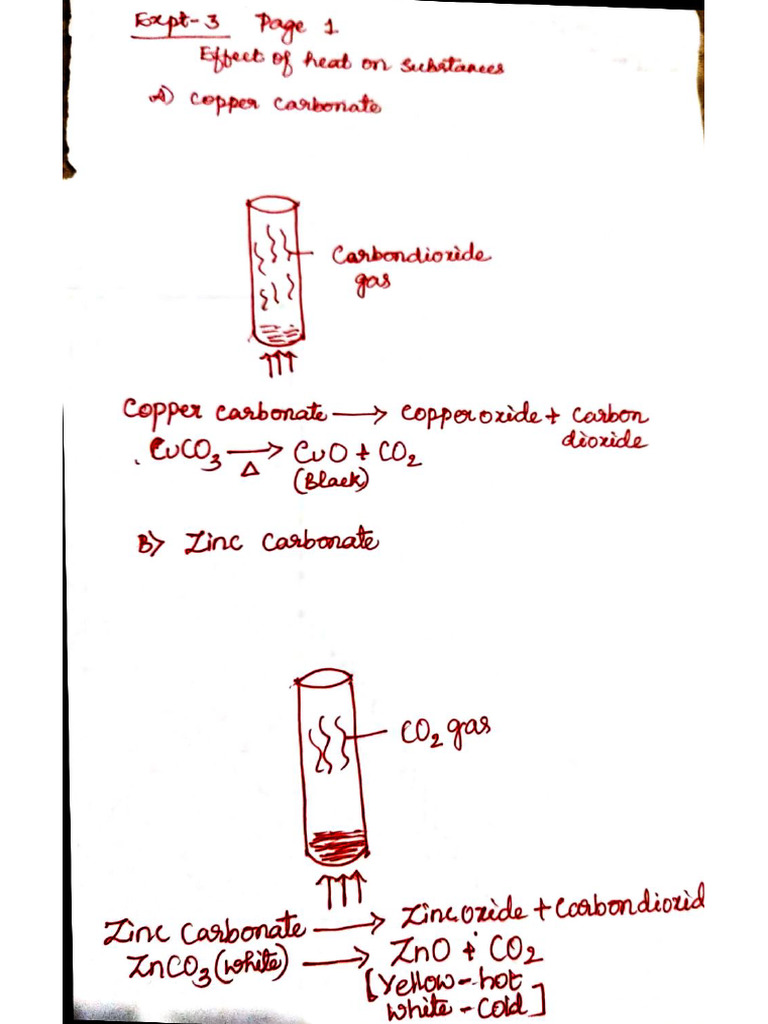 Expt-3 Page 1
Effect of heat on substances
A) Copper carbonate
Carbondioxide
gas
Copper carbonate → Copper oxide + Carbon
dioxide
CuCO₃ →Δ CuO + CO₂
(Black)
B) Zinc Carbonate
CO₂ gas
Zinc Carbonate → Zinc oxide + Carbondioxid
ZnCO₃ (white) → ZnO + CO₂
[Yellow-hot
white-cold]